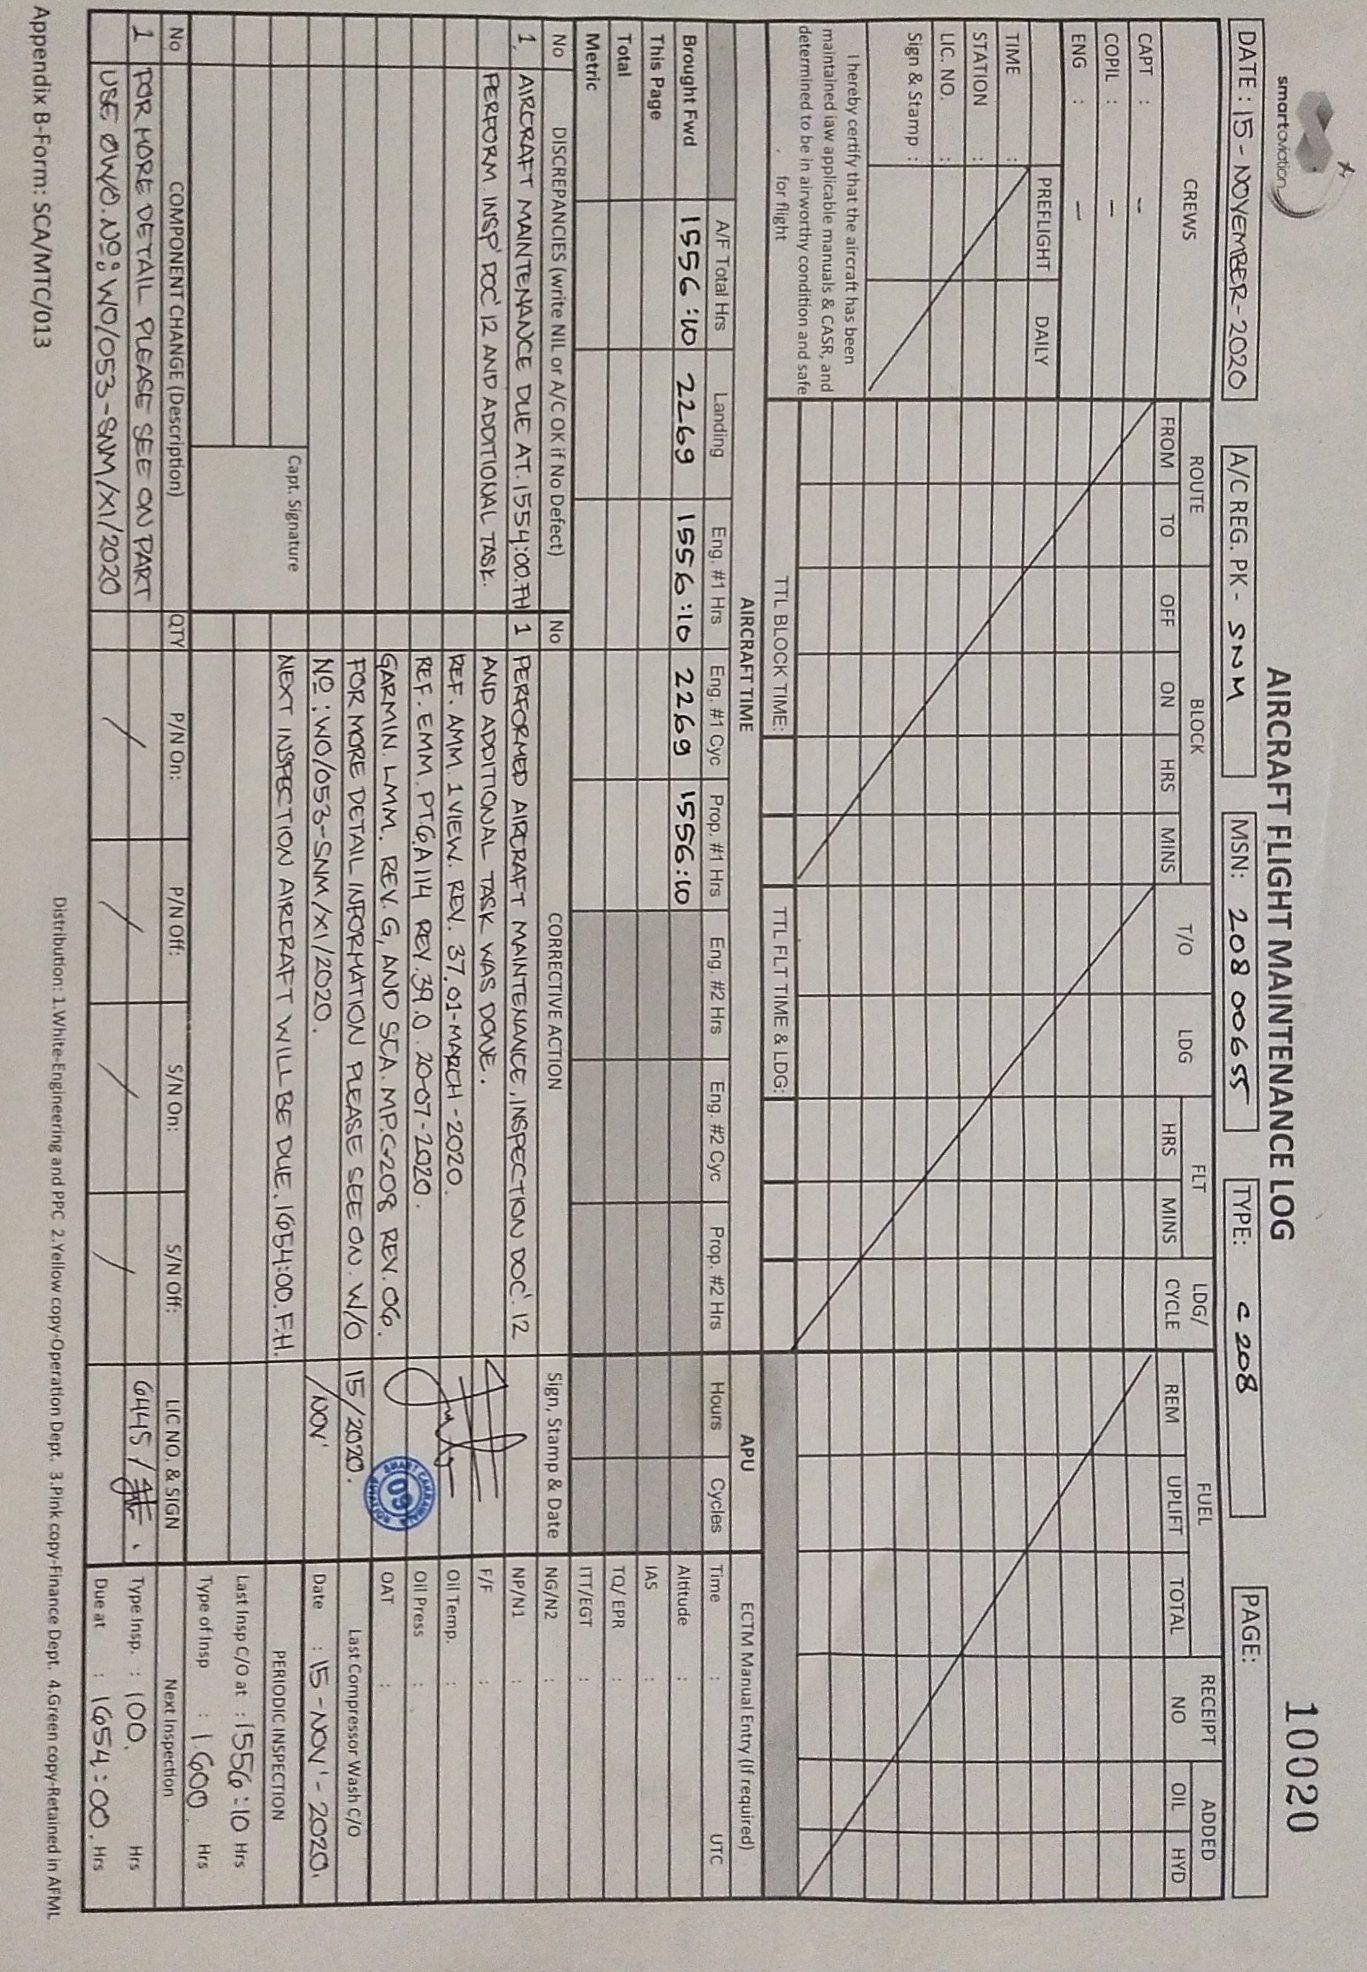 smartaviation
AIRCRAFT FLIGHT MAINTENANCE LOG
10020
DATE : 15 - NOVEMBER - 2020
A/C REG. PK - SNM
MSN: 208 00655
TYPE: C 208
PAGE:
CREWS
ROUTE
BLOCK
T/O
LDG
FLT
LDG/
CYCLE
FUEL
RECEIPT
NO
ADDED
FROM
TO
OFF
ON
HRS
MINS
HRS
MINS
REM
UPLIFT
TOTAL
OIL
HYD
CAPT : –
COPIL : –
ENG : –
PREFLIGHT
DAILY
TIME :
STATION :
LIC. NO. :
Sign & Stamp :
I hereby certify that the aircraft has been
maintained iaw applicable manuals & CASR, and
determined to be in airworthy condition and safe
for flight
TTL BLOCK TIME:
TTL FLT TIME & LDG:
AIRCRAFT TIME
APU
ECTM Manual Entry (If required)
A/F Total Hrs
Landing
Eng. #1 Hrs
Eng. #1 Cyc
Prop. #1 Hrs
Eng. #2 Hrs
Eng. #2 Cyc
Prop. #2 Hrs
Hours
Cycles
Time : UTC
Brought Fwd
1556:10
2269
1556:10
2269
1556:10
Altitude :
This Page
IAS :
Total
TQ/ EPR :
Metric
ITT/EGT :
No
DISCREPANCIES (write NIL or A/C OK if No Defect)
No
CORRECTIVE ACTION
Sign, Stamp & Date
NG/N2 :
1. AIRCRAFT MAINTENANCE DUE AT. 1554:00.FH
PERFORM INSP' DOC' 12 AND ADDITIONAL TASK.
1 PERFORMED AIRCRAFT MAINTENANCE, INSPECTION DOC'. 12
AND ADDITIONAL TASK WAS DONE.
REF. AMM. 1 VIEW. REV. 37, 01-MARCH-2020.
REF. EMM. PT6A114 REV. 39.0. 20-07-2020.
GARMIN. LMM. REV. G, AND SCA. MP.C-208 REV. 06.
FOR MORE DETAIL INFORMATION PLEASE SEE ON. W/O
NO : WO/053-SNM/XI/2020.
NEXT INSPECTION AIRCRAFT WILL BE DUE. 1654:00. F.H.
15/2020.
/NOV'
SMART CAKRAWALA AVIATION
09
NP/N1 :
F/F :
Oil Temp. :
Oil Press :
OAT :
Last Compressor Wash C/O
Date : 15 - NOV' - 2020.
PERIODIC INSPECTION
Last Insp C/O at : 1556:10 Hrs
Type of Insp : 1.600 Hrs
Capt. Signature
No
COMPONENT CHANGE (Description)
QTY
P/N On:
P/N Off:
S/N On:
S/N Off:
LIC NO. & SIGN
Next Inspection
1 FOR MORE DETAIL PLEASE SEE ON PART
6445 /
Type Insp. : 100. Hrs
USE ON/O. NO: WO/053-SNM/XI/2020
Due at : 1654:00. Hrs
Appendix B-Form: SCA/MTC/013
Distribution: 1.White-Engineering and PPC 2.Yellow copy-Operation Dept. 3.Pink copy-Finance Dept. 4.Green copy-Retained in AFML